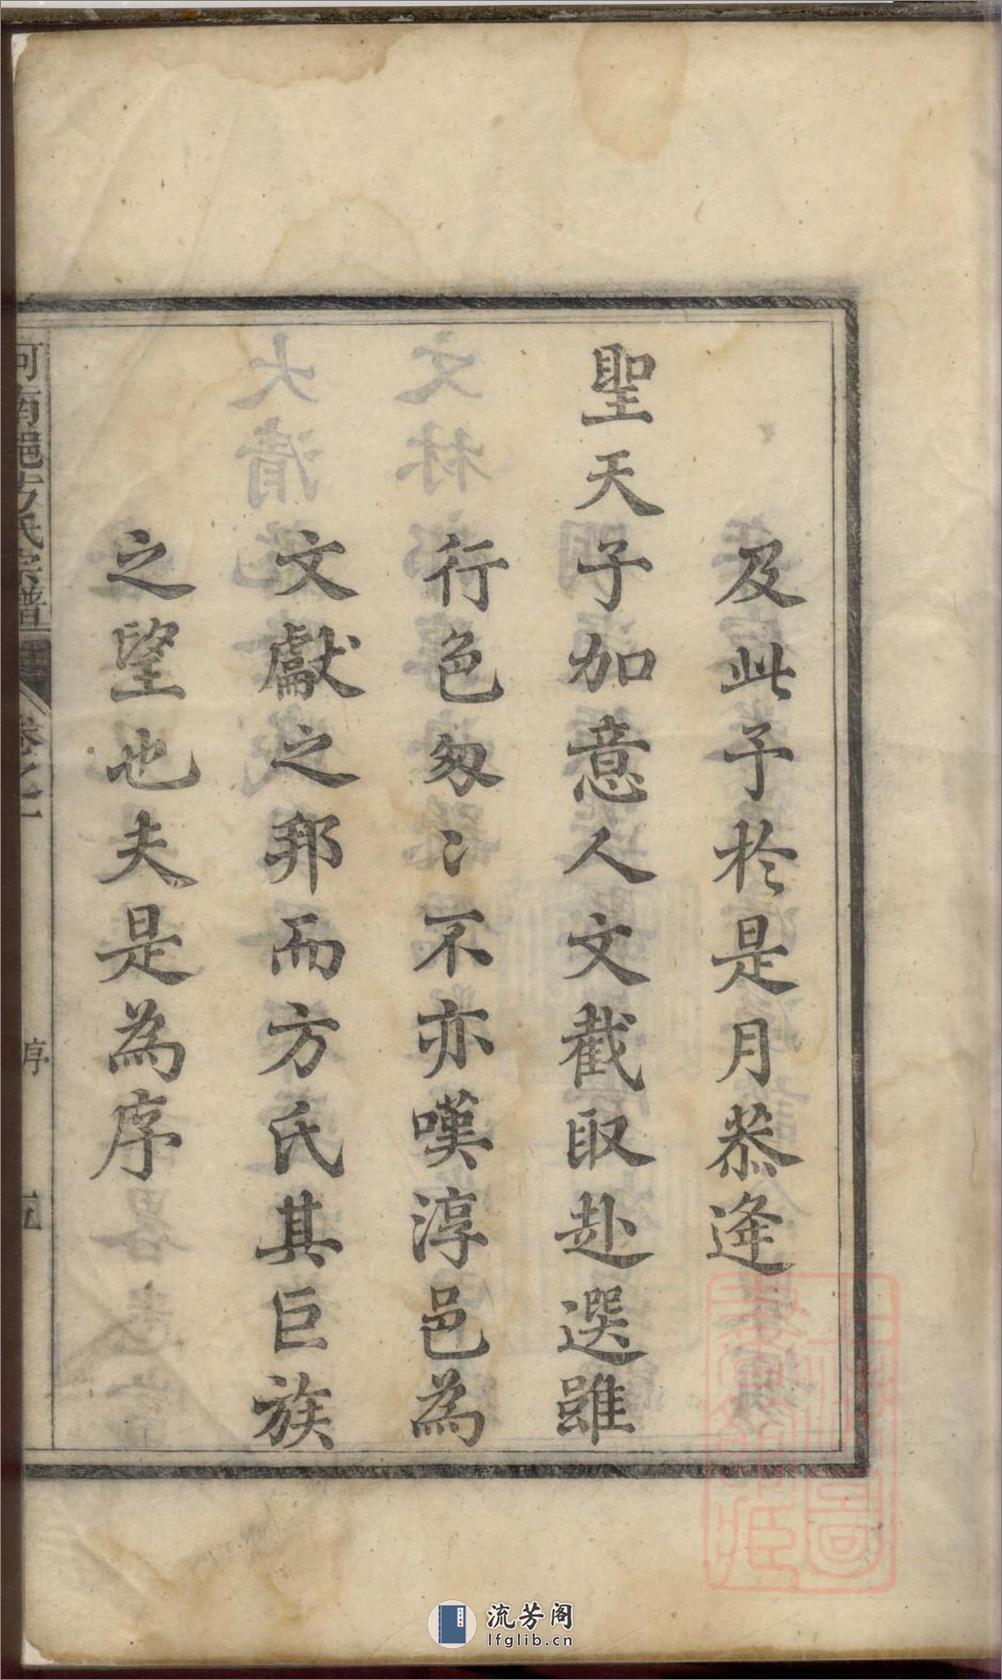 及此予於是月恭逢
聖天子加意人文截取赴選雖
行色匆〻不亦嘆淳邑為
文獻之邦而方氏其巨族
之望也夫是為序
河南郡方氏宗譜
卷之一
序
五
流芳阁
lfglib.cn